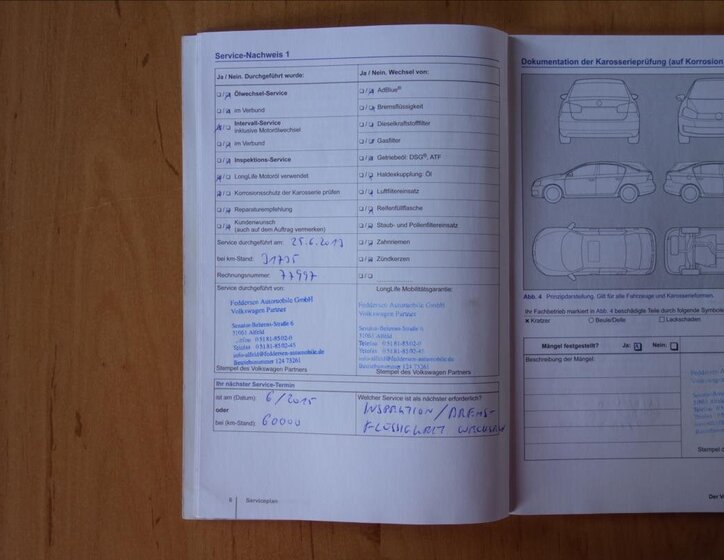 Service-Nachweis 1
Ja / Nein. Durchgeführt wurde:
Ölwechsel-Service
im Verbund
Intervall-Service
inklusive Motorölwechsel
im Verbund
Inspektions-Service
LongLife Motoröl verwendet
Korrosionsschutz der Karosserie prüfen
Reparaturempfehlung
Kundenwunsch
(auch auf dem Auftrag vermerken)
Service durchgeführt am: 25.6.2013
bei km-Stand: 31735
Rechnungsnummer: 77997
Service durchgeführt von:
Feddersen Automobile GmbH
Volkswagen Partner
Senator-Behrens-Straße 6
31061 Alfeld
Telefon 0 51 81-85 02-0
Telefax 0 51 81-85 02-45
info-alfeld@feddersen-automobile.de
Betriebsnummer 124 73261
Stempel des Volkswagen Partners
Ja / Nein. Wechsel von:
AdBlue®
Bremsflüssigkeit
Dieselkraftstofffilter
Gasfilter
Getriebeöl: DSG®, ATF
Haldexkupplung: Öl
Luftfiltereinsatz
Reifenfüllflasche
Staub- und Pollenfiltereinsatz
Zahnriemen
Zündkerzen
LongLife Mobilitätsgarantie:
Feddersen Automobile GmbH
Volkswagen Partner
Senator-Behrens-Straße 6
31061 Alfeld
Telefon 0 51 81-85 02-0
Telefax 0 51 81-85 02-45
info-alfeld@feddersen-automobile.de
Betriebsnummer 124 73261
Stempel des Volkswagen Partners
Ihr nächster Service-Termin
ist am (Datum): 6/2015
oder
bei (km-Stand): 60000
Welcher Service ist als nächster erforderlich?
INSPEKTION / BREMS-
FLÜSSIGKEIT WECHSELN
6 Serviceplan
Dokumentation der Karosserieprüfung (auf Korrosion
Abb. 4 Prinzipdarstellung. Gilt für alle Fahrzeuge und Karosserieformen.
Ihr Fachbetrieb markiert in Abb. 4 beschädigte Teile durch folgende Symbole
× Kratzer ○ Beule/Delle □ Lackschaden
Mängel festgestellt? Ja: Nein:
Beschreibung der Mängel:
Stempel d